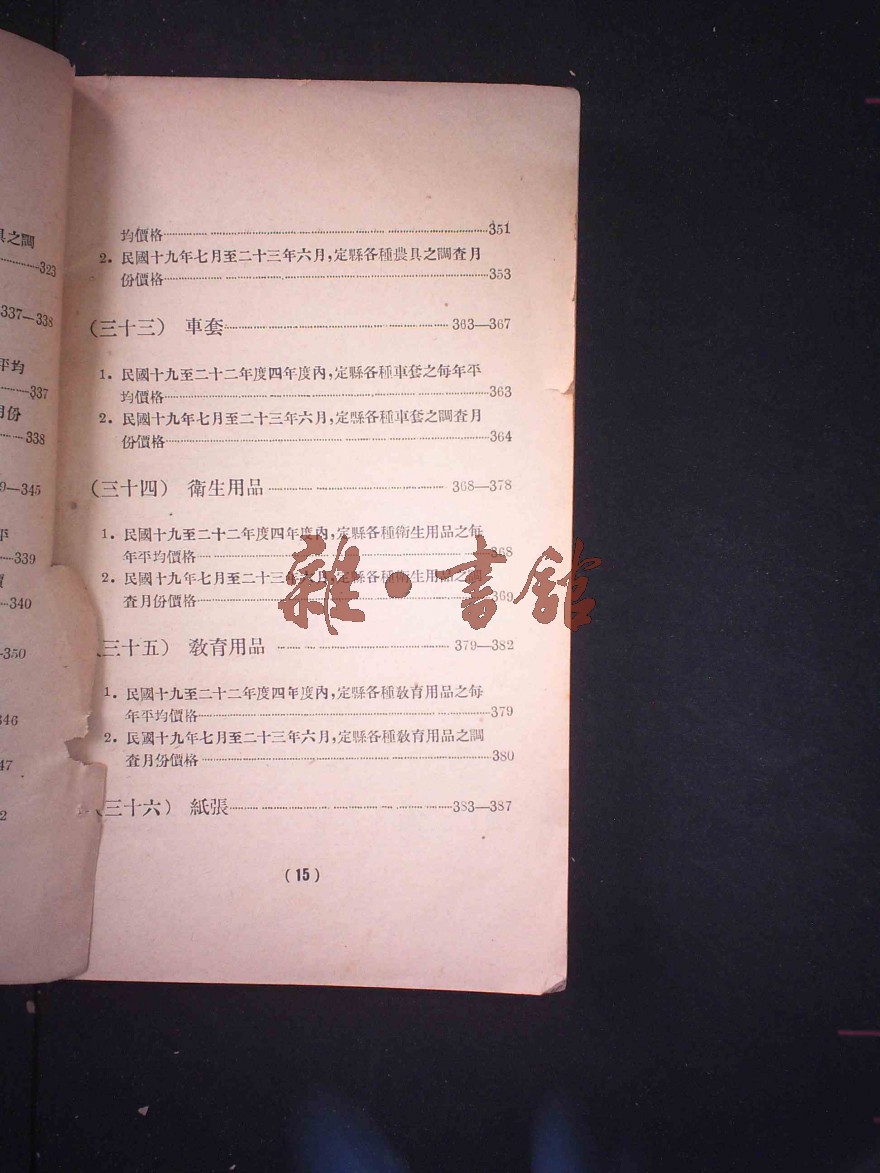 具之調
323
337—338
平均
337
月份
338
9—345
平
339
價
340
—350
346
47
2
均價格 351
2. 民國十九年七月至二十三年六月,定縣各種農具之調查月
份價格 353
(三十三) 車套 363—367
1. 民國十九至二十二年度四年度內,定縣各種車套之每年平
均價格 363
2. 民國十九年七月至二十三年六月,定縣各種車套之調查月
份價格 364
(三十四) 衛生用品 368—378
1. 民國十九至二十二年度四年度內,定縣各種衛生用品之每
年平均價格 368
2. 民國十九年七月至二十三年六月,定縣各種衛生用品之調
查月份價格 369
雜·書館
(三十五) 教育用品 379—382
1. 民國十九至二十二年度四年度內,定縣各種教育用品之每
年平均價格 379
2. 民國十九年七月至二十三年六月,定縣各種教育用品之調
查月份價格 380
(三十六) 紙張 383—387
(15)